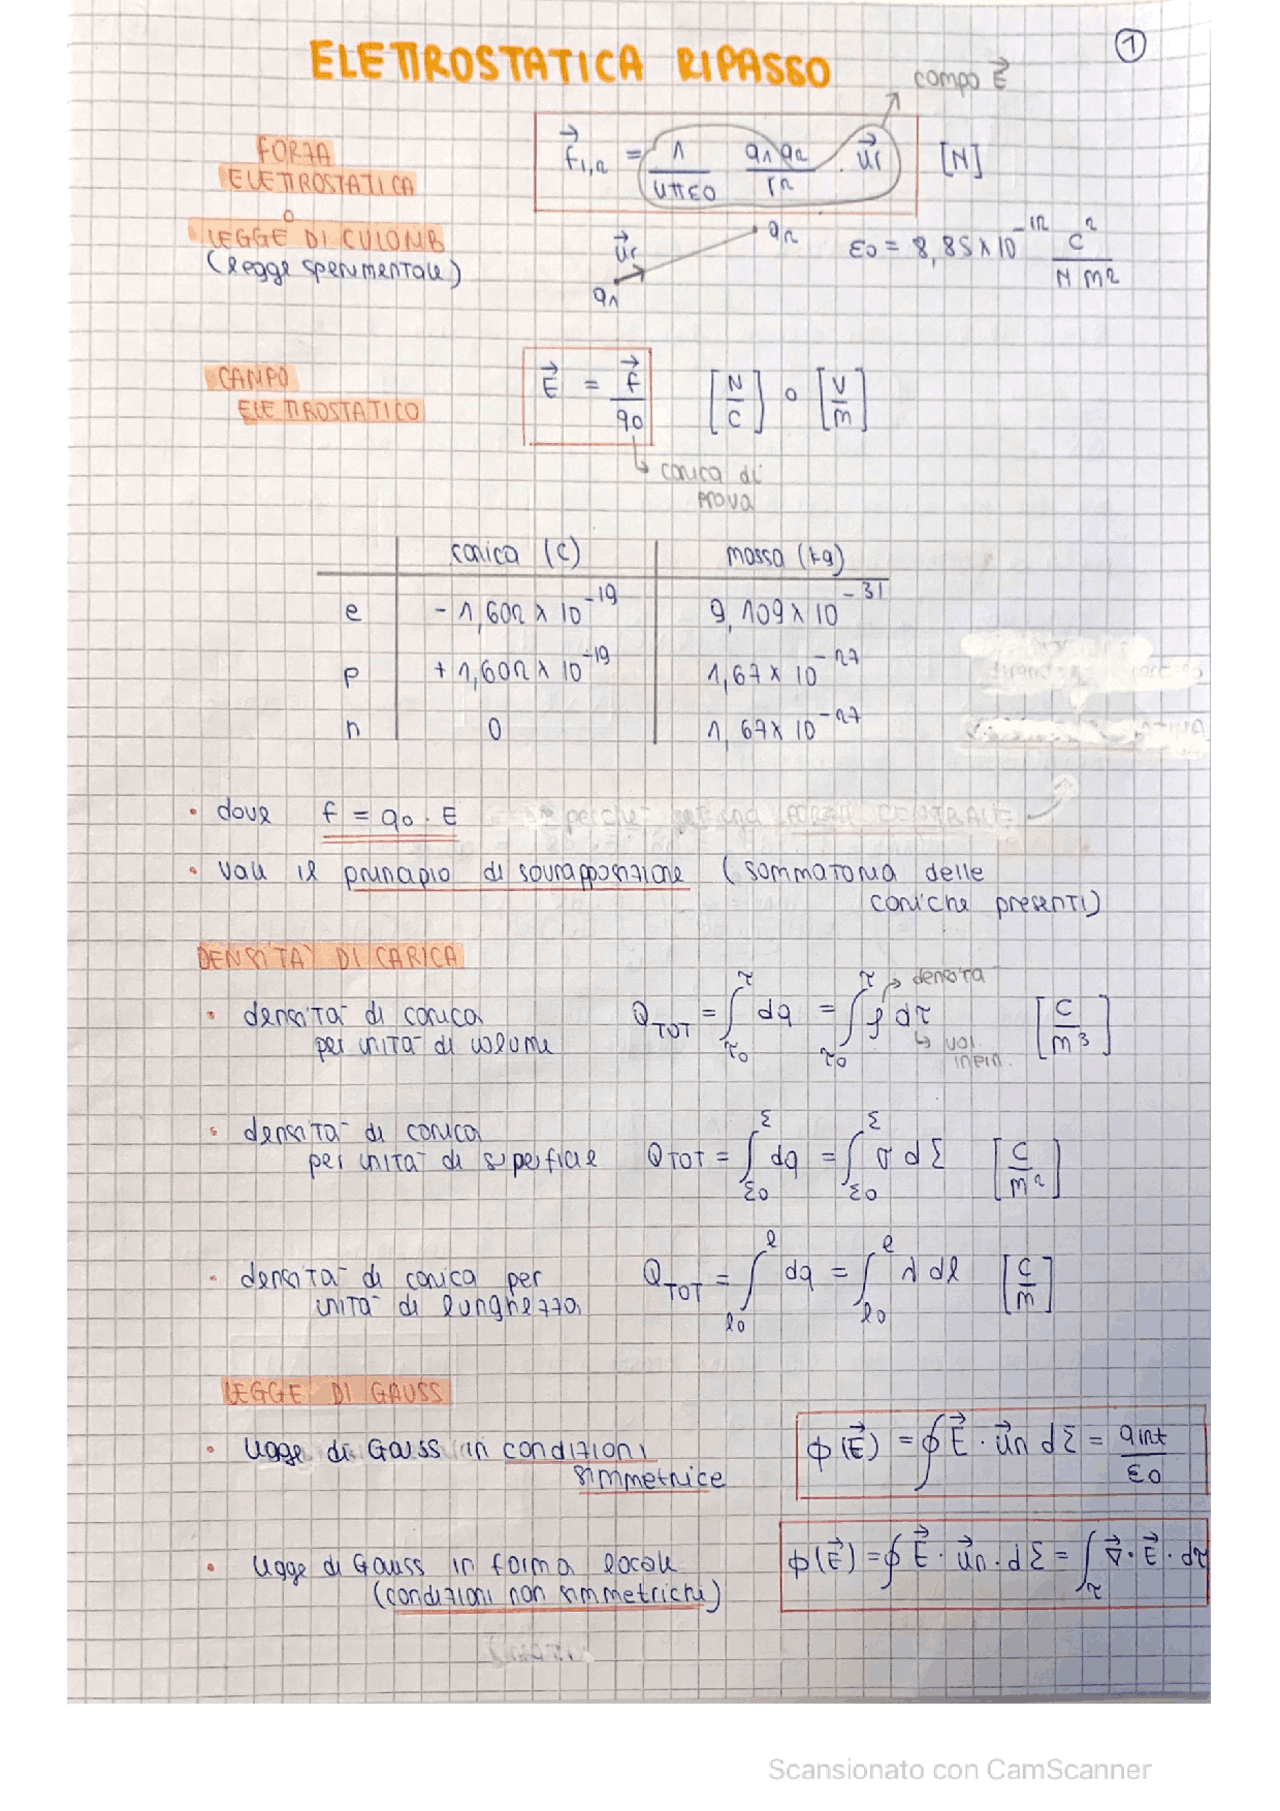 1
ELETTROSTATICA RIPASSO
campo E⃗
FORZA
ELETTROSTATICA
O
LEGGE DI CULOMB
(legge sperimentale)
f⃗1,2 = 1/(4πε0) q1q2/r2 · u⃗r [N]
u⃗r
q1
q2
ε0 = 8,85x10^-12 C^2/(N m2)
CAMPO
ELETTROSTATICO
E⃗ = f⃗/q0 [N/C] o [V/m]
carica di
prova
carica (C) massa (kg)
e - 1,602 x 10^-19 9,109 x 10^-31
p + 1,602 x 10^-19 1,67 x 10^-27
n 0 1,67 x 10^-27
• dove f = q0 · E
perche
• vale il principio di sovrapposizione (sommatoria delle
cariche presenti)
DENSITA' DI CARICA
• densità di carica
per unità di volume
Q TOT = ∫τ0^τ dq = ∫τ0^τ ρ dτ [C/m^3]
densità
vol
infin.
• densità di carica
per unità di superficie
QTOT = ∫Σ0^Σ dq = ∫Σ0^Σ σ dΣ [C/m^2]
• densità di carica per
unità di lunghezza
Q TOT = ∫l0^l dq = ∫l0^l λ dl [C/m]
LEGGE DI GAUSS
• legge di Gauss in condizioni
simmetrice
ϕ(E⃗) = ∮ E⃗ · u⃗n dΣ = qint/ε0
• legge di Gauss in forma locale
(condizioni non simmetriche)
ϕ(E⃗) = ∮ E⃗ · u⃗n · dΣ = ∫τ ∇⃗ · E⃗ · dτ
Scansionato con CamScanner